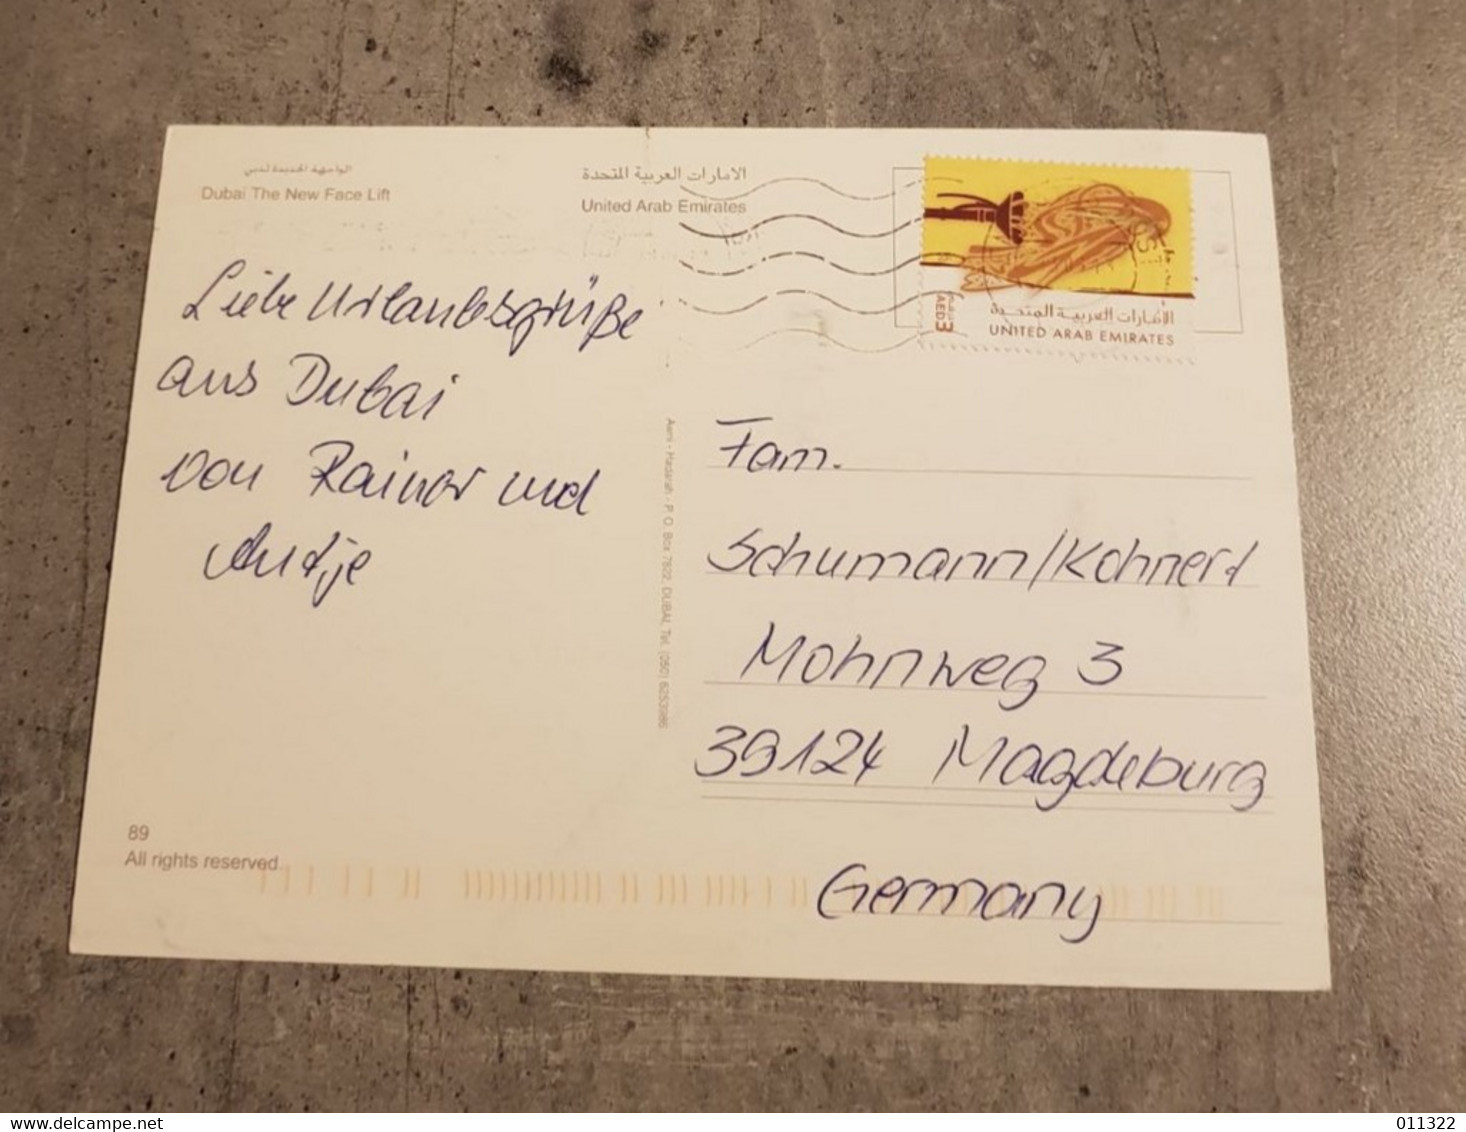 الواجهة الجديدة لدبي
Dubai The New Face Lift
الامارات العربية المتحدة
United Arab Emirates
Liebe Urlaubsgrüße
aus Dubai
von Rainer und
Antje
89
All rights reserved
P.O. Box 7922, DUBAI, Tel. (050)
3 AED
الإمارات العربية المتحدة
UNITED ARAB EMIRATES
Fam.
Schumann/Kohnert
Mohnweg 3
39124 Magdeburg
Germany
www.delcampe.net
011322